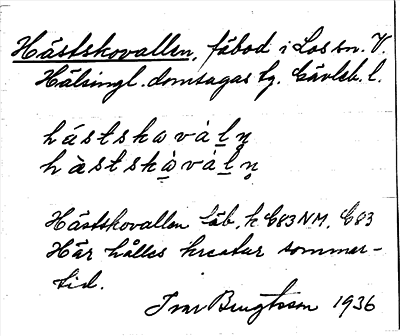 Hästskovallen, fäbod i Los sn. V.
Hälsingl. domsagas tg. Gävleb. l.
hástskavàl̲n̥
hàstskạvàl̲n̥
Hästskovallen fäb, k C83NM, C83
Här hålles kreatur sommar-
tid.
Ivar Bengtsson 1936